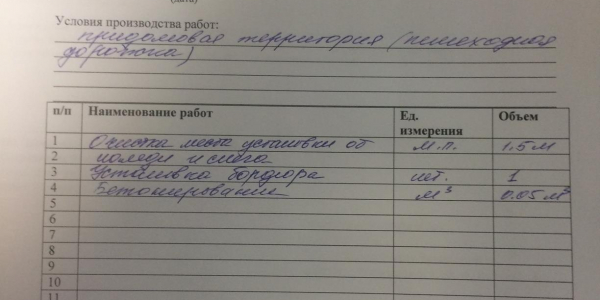 (дата)
Условия производства работ:
придомовая территория (пешеходная
дорожка)
п/п Наименование работ Ед. измерения Объем
1 Очистка места установки от м.п. 1.5 м
2 наледи и снега
3 Установка бордюра шт. 1
4 Бетонирование м³ 0.05 м³
5
6
7
8
9
10
11